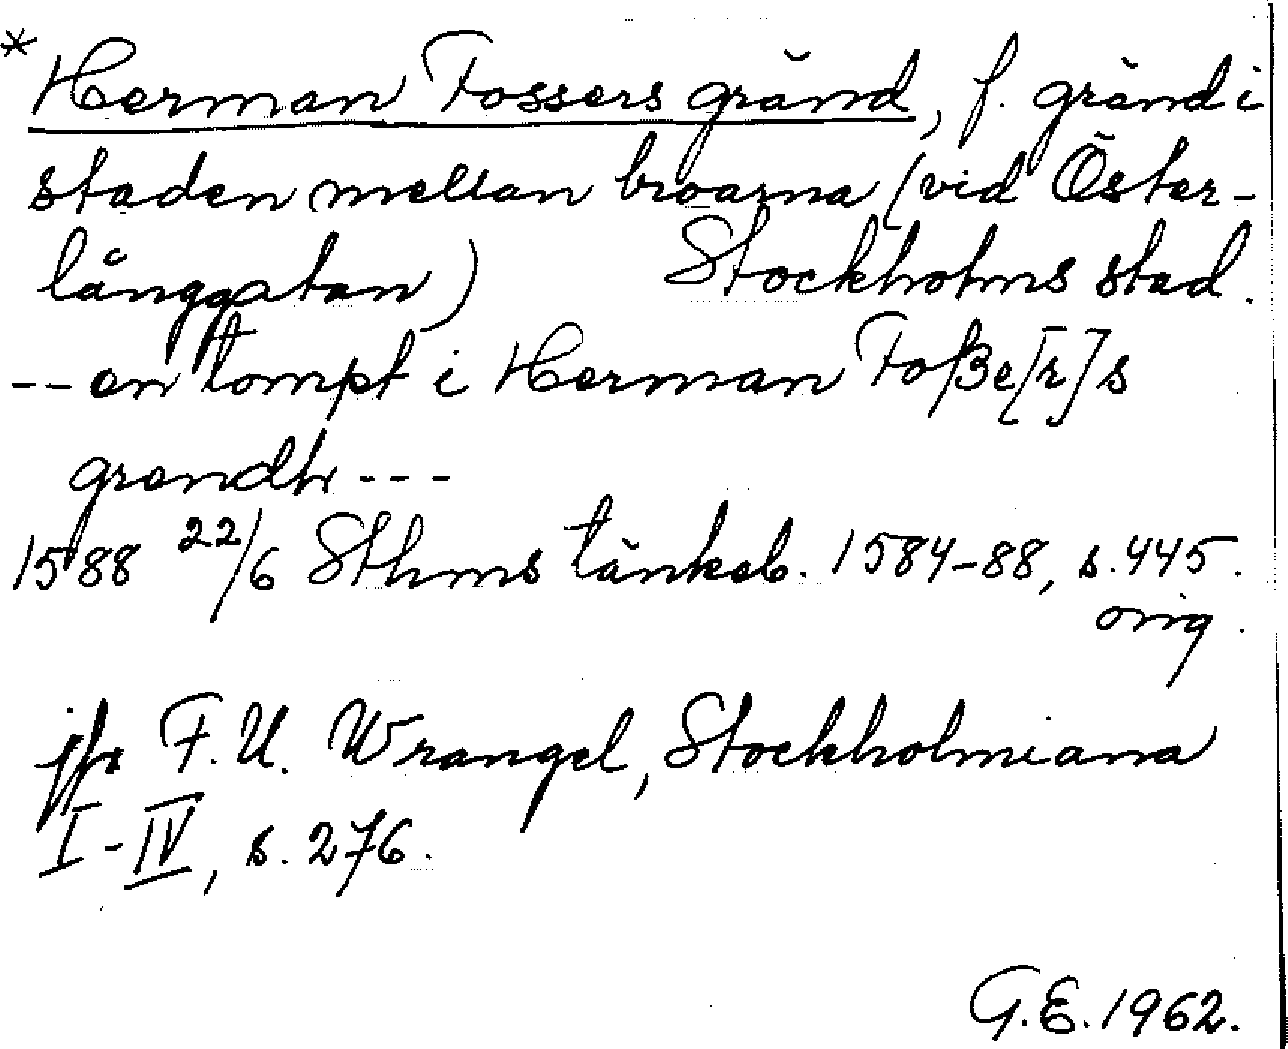 *Herman Fossers gränd, f. gränd i
staden mellan broarna (vid Öster-
långgatan) Stockholms stad.
-- en tompt i Herman Foße[r]s
grendh ---
1588 22/6 Sthms tänkeb. 1584-88, s. 445.
orig.
jfr F. U. Wrangel, Stockholmiana
I-IV, s. 276.
G.E. 1962.